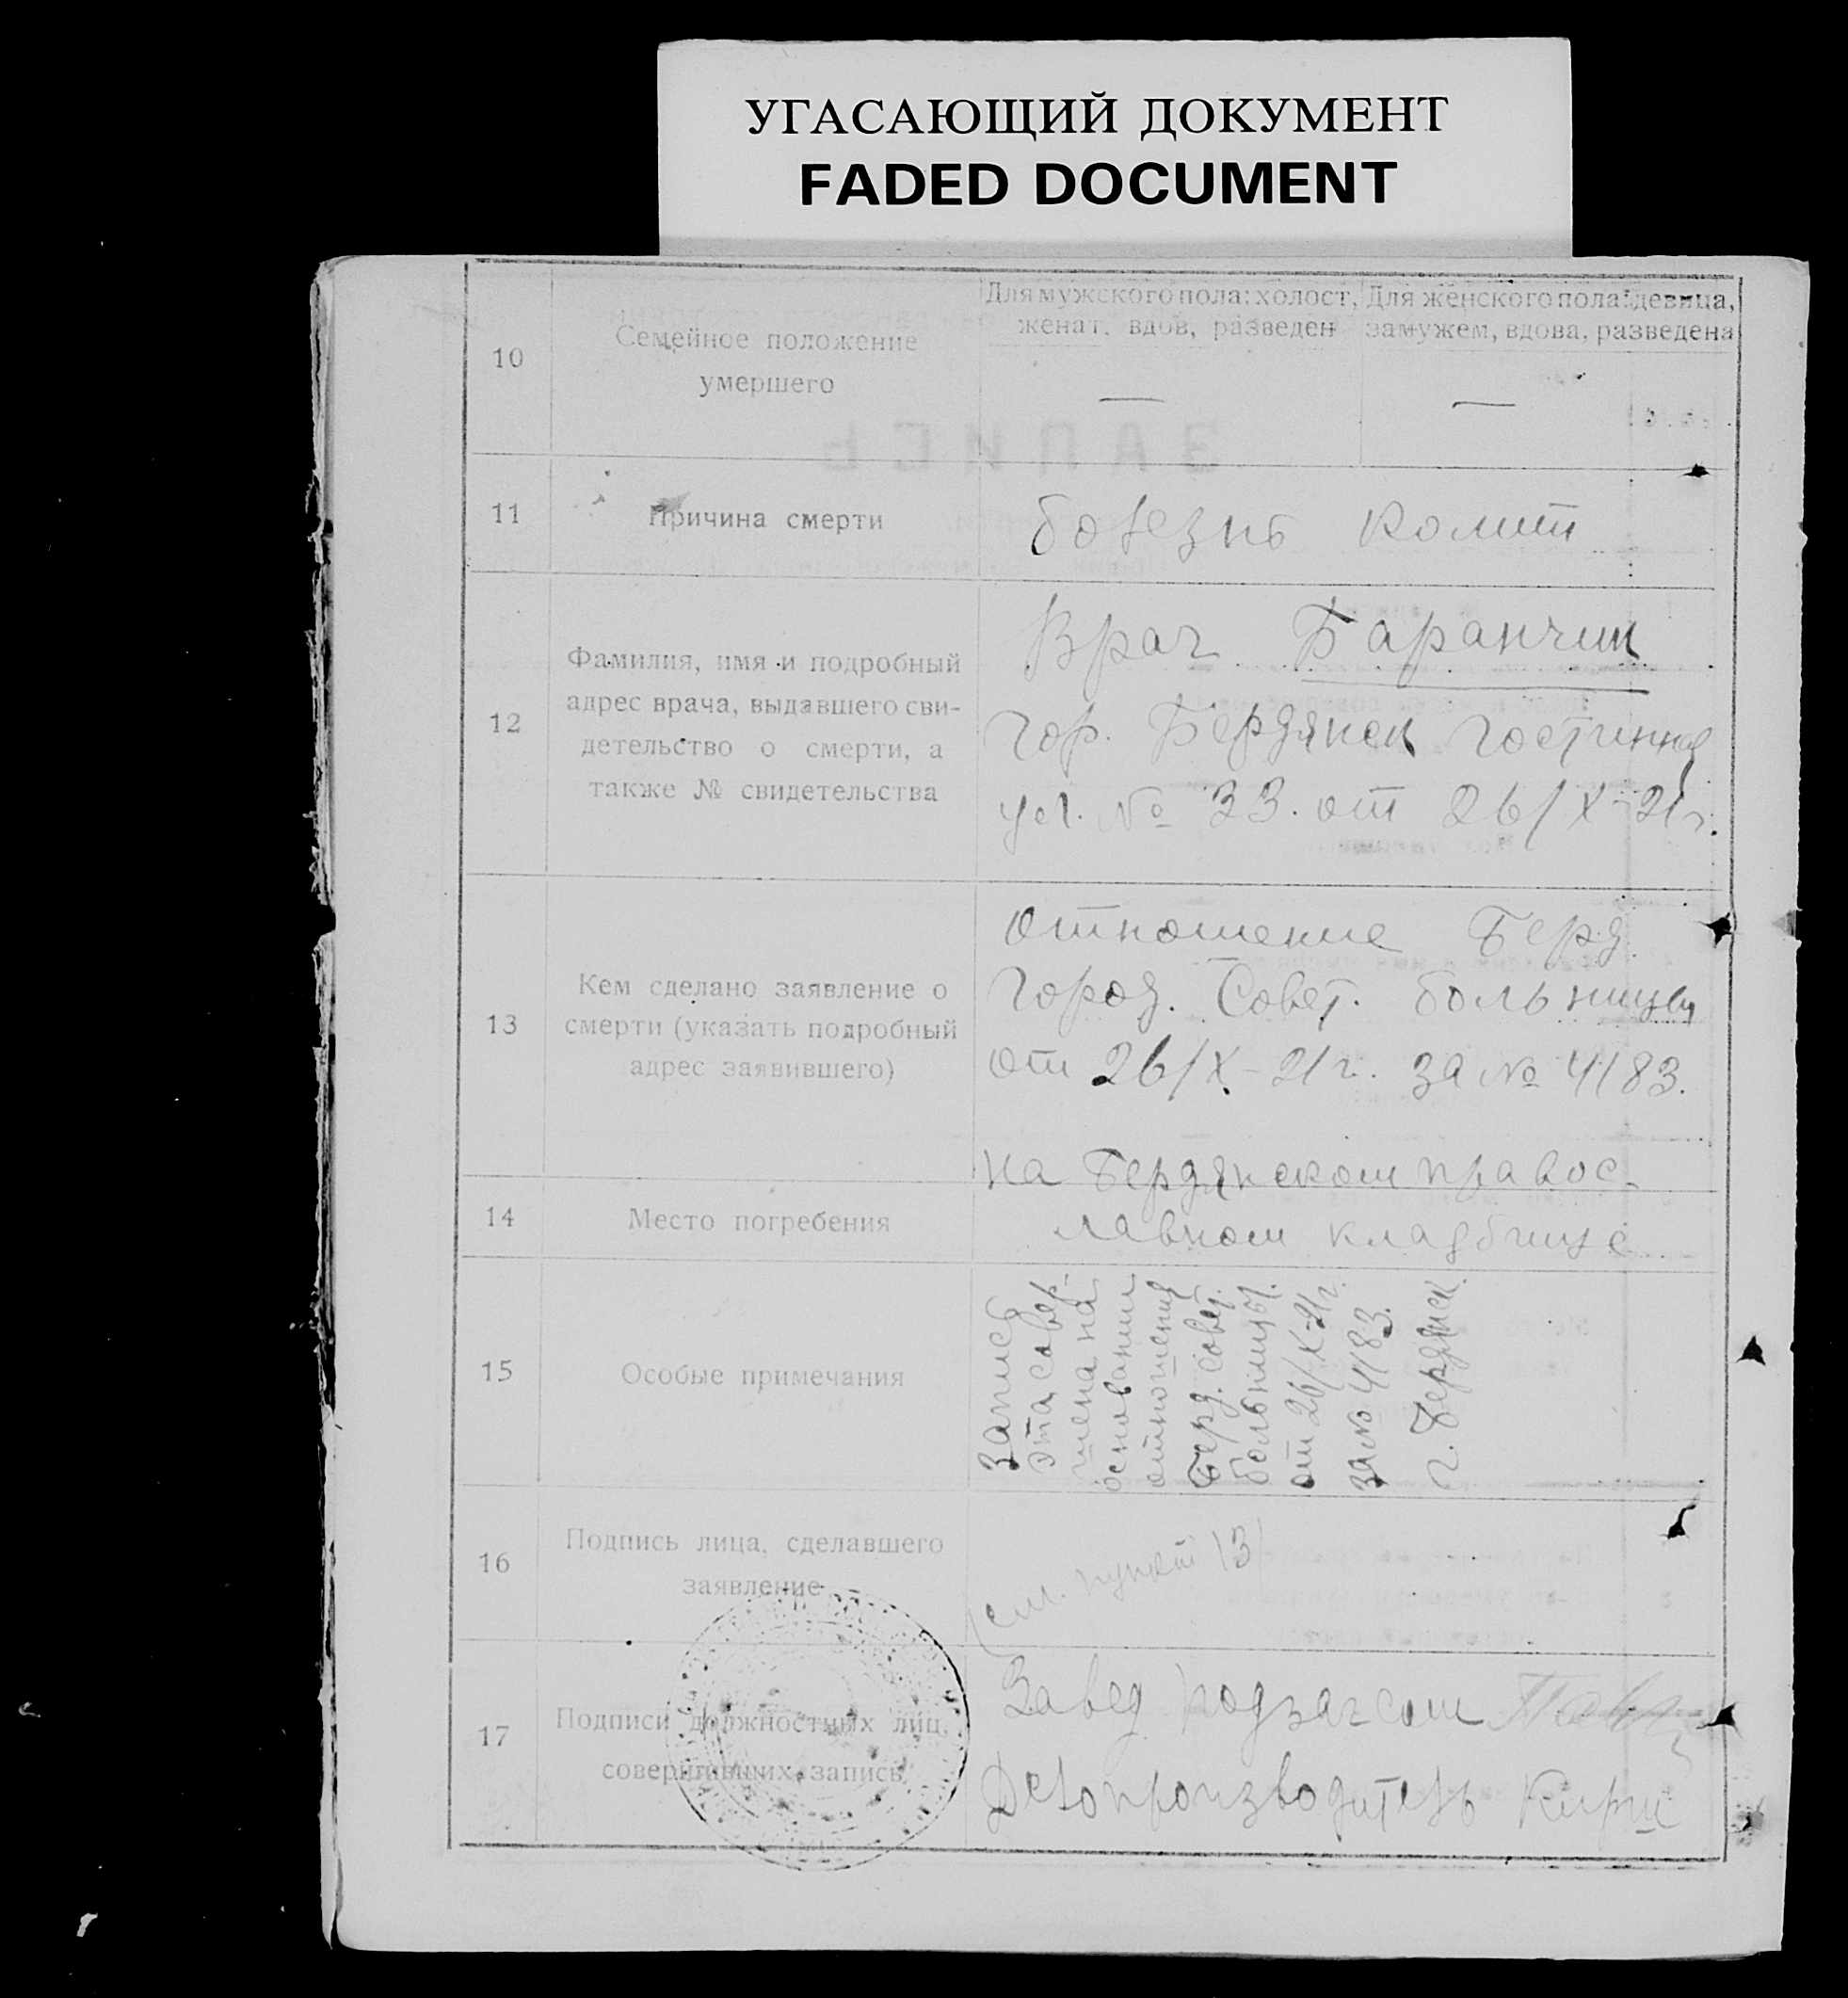 УГАСАЮЩИЙ ДОКУМЕНТ
FADED DOCUMENT
10
Семейное положение
умершего
Для мужского пола: холост,
женат, вдов, разведен
Для женского пола: девица,
замужем, вдова, разведена
—
—
11
Причина смерти
болезнь колит
12
Фамилия, имя и подробный
адрес врача, выдавшего сви-
детельство о смерти, а
также № свидетельства
Врач Баранчик
гор. Бердянск Гостинная
ул. № 33. от 26/X-21 г.
13
Кем сделано заявление о
смерти (указать подробный
адрес заявившего)
отношение Берд.
Город. Совет. больницы
от 26/X-21 г. за № 4183.
14
Место погребения
на Бердянском правос-
лавном кладбище
15
Особые примечания
Запись
эта совер-
шена на
основании
отношения
Берд. совет.
больницы.
от 26/X-21г.
за № 4183.
г. Бердянск.
16
Подпись лица, сделавшего
заявление
(см. пункт 13)
17
Подписи должностных лиц,
совершивших запись
Завед подзагсом
Делопроизводитель Кирш